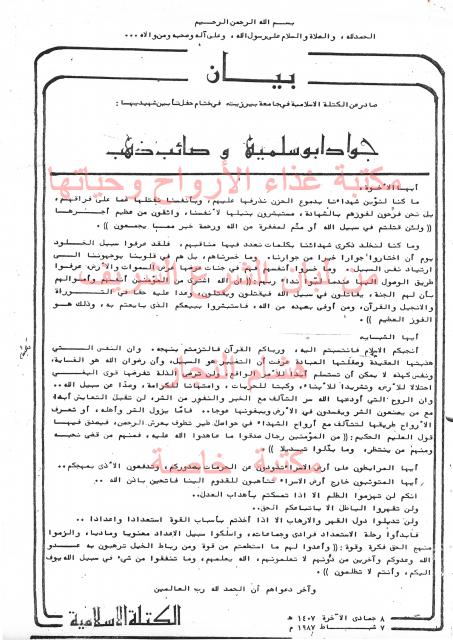 بسم الله الرحمن الرحيم
الحمد لله ، والصلاة والسلام على رسول الله ، وعلى آله وصحبه ومن والاه ...
بيان
صادر عن الكتلة الاسلامية في جامعة بيرزيت، في ختام حفل تأبين شهيديها :
جواد ابو سلمية و صائب ذهب
مكتبة غذاء الأرواح وحياتها
أيها الاخوة:
ما كنا لنؤبن شهداءنا بدموع الحزن نذرفها عليهم ، وبأنفسنا نقتلها غما على فراقهم ،
بل نحن فرحون لفوزهم بالشهادة ، مستبشرون بنيلها لأنفسنا، واثقون من عظيم أجرها
(( ولئن قتلتم في سبيل الله أو متم لمغفرة من الله ورحمة خير مما يجمعون )) .
وما كنا لنخلد ذكرى شهدائنا بكلمات نعدد فيها مناقبهم ، فلقد عرفوا سبيل الخلود
يوم أن اختاروا جوارا خيرا من جوارنا. وما خسرناهم، بل هم في قلوبنا يوجهوننا الى
ارتياد نفس السبيل. وما خسروا أنفسهم فهم في جنات عرضها السموات والأرض، عرفوا
طريق الوصول اليها
بأن لهم الجنة، يقاتلون في سبيل الله فيقتلون ويقتلون، وعدا عليه حقا في التوراة
والانجيل والقرآن، ومن أوفى بعهده من الله، فاستبشروا ببيعكم الذي بايعتم به، وذلك هو
الفوز العظيم )) .
أيها الشباب:
هيثم النجار
احتلالا للأرض، وتشريدا للأبناء، وكبتا للحريات ، وامتهانا للكرامة، وصدا عن سبيل الله..
وان الروح التي أودعها الله سر التآلف مع الخير والنفور من الشر، لن تقبل التعايش أبدا
مع من يصنعون الشر ويفسدون في الأرض ويبغونها عوجا..
الأرواح طريقها لتتآلف مع أرواح الشهداء في حواصل طير تطوف بعرش الرحمن،
قول العليم الحكيم:(( من المؤمنين رجال صدقوا ما عاهدوا الله عليه، فمنهم من قضى نحبه
ومنهم من ينتظر، وما بدلوا تبديلا )) .
مكتبة خاصة
أيها المرابطون على أرض الاسراء تذودون عن الحرمات بصدوركم، وتدفعون الأذى بمهجكم..
أيها المتوثبون خارج أرض الاسراء تتأهبون للقدوم الينا فاتحين باذن الله ..
انكم لن تهزموا الظلم الا اذا تمسكتم بأهداب العدل..
ولن تقهروا الباطل الا باتباعكم الحق..
ولن تديلوا دول القهر والارهاب الا اذا أخذتم بأسباب القوة استعدادا واعدادا ..
فابدأوا رحلة الاستعداد فرادى وجماعات، واسلكوا سبيل الاعداد معنويا وماديا، والزموا
منهج الحق فكرة وقوة:(( وأعدوا لهم ما استطعتم من قوة ومن رباط الخيل ترهبون به عدو
الله وعدوكم وآخرين من دونهم لا تعلمونهم، الله يعلمهم، وما تنفقوا من شيء في سبيل الله يوف
اليكم، وأنتم لا تظلمون )) .
وآخر دعواهم أن الحمد لله رب العالمين
الكتلة الاسلامية
٨ جمادى الآخرة ١٤٠٧ هـ
٧ شباط ١٩٨٧ م